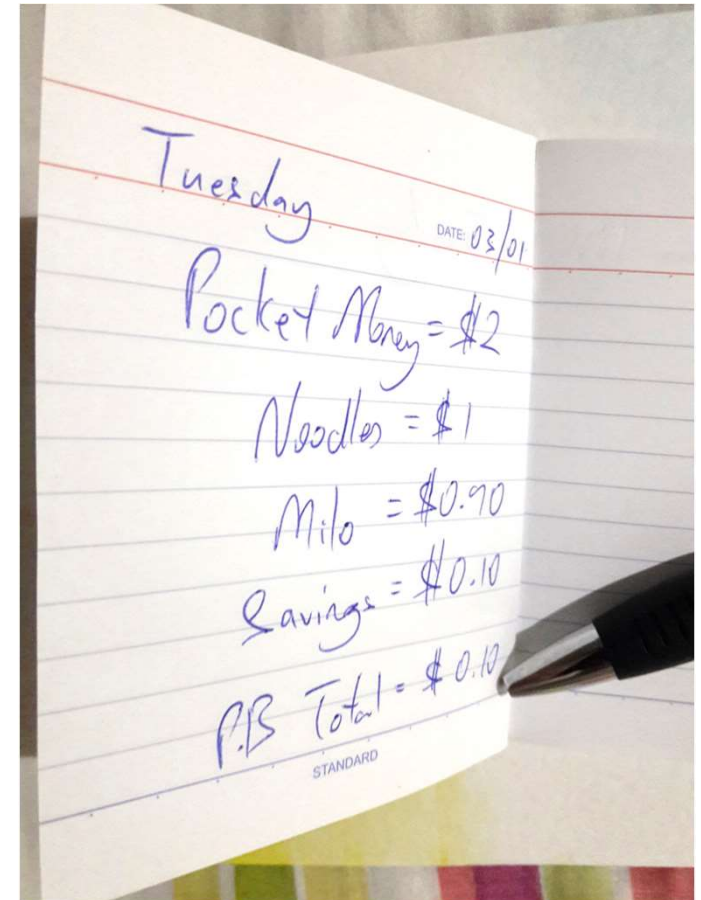 Tuesday
DATE: 03/01
Pocket Money = $2
Noodles = $1
Milo = $0.90
Savings = $0.10
P.B Total = $0.10
STANDARD